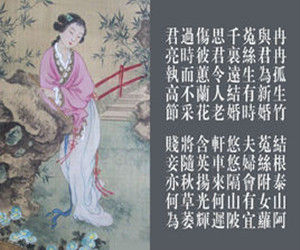 冉冉孤生竹 結根泰山阿
與君為新婚 菟絲附女蘿
菟絲生有時 夫婦會有宜
千裏遠結婚 悠悠隔山陂
思君令人老 軒車來何遲
傷彼蕙蘭花 含英揚光輝
過時而不采 將隨秋草萎
君亮執高節 賤妾亦何為